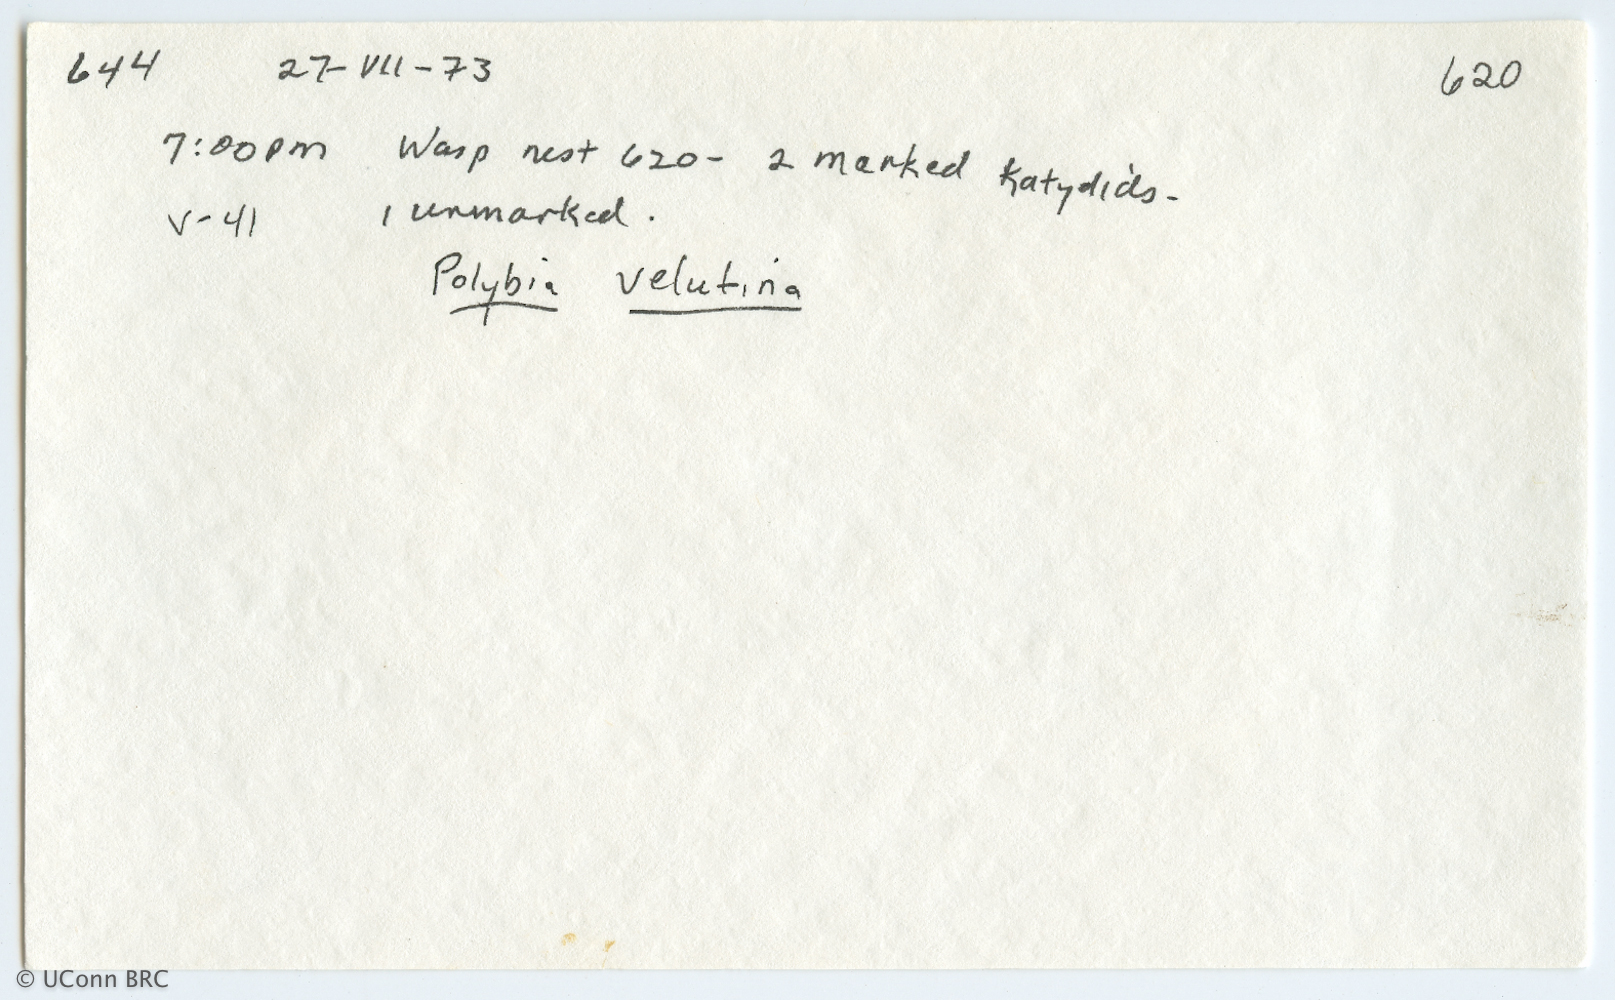 644 27-VII-73 620
7:00pm Wasp nest 620- 2 marked katydids-
V-41 1 unmarked.
Polybia velutina
© UConn BRC